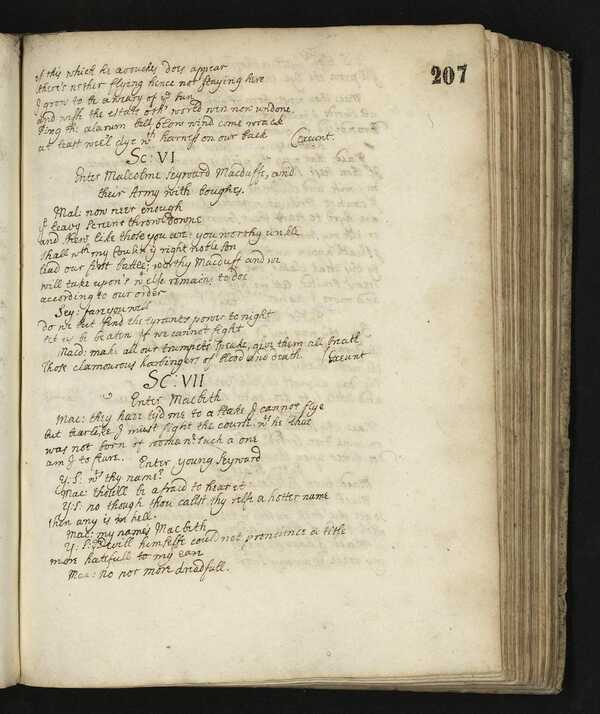 207
if this which he avouches does appear
there's nether flying hence nor staying here
I grow to be a weary of ye sun
and wish the estate oth' world wer now undone
Ring the alarum bell blow wind come wrack
at least wee'l dye wth harness on our back Exeunt.
Sc: VI
Enter Malcolme Seyward Macduffe, and
their Army with boughes.
Mal: now neer enough
yr leavy screens throw downe
and shew like those you are: you worthy unkle
shall wth my Cousin yr right noble son
lead our first battle; worthy Macduff and we
will take upon's wt else remains to doe
according to our order
Sey: fare you well
do we but find the tyrants power to night
let us be beaten if we cannot fight
Macd: make all our trumpets speake, give them all breath
Those clamourous harbingers of blood and death. Exeunt
SC: VII
Enter Macbeth
Mac: they have tyd me to a stake I cannot flye
but bearlike I must fight the course. wts he that
was not born of woman? such a one
am I to feare. Enter young Seyward
Y.S. wts thy name?
Mac: thou'll be afraid to hear it
Y.S: no though thou callst thy selfe a hotter name
then any is in hell.
Mac: my names Macbeth
Y.S: Devill himselfe could not pronounce a title
more hatefull to my eare
Mac: no nor more dreadfull.